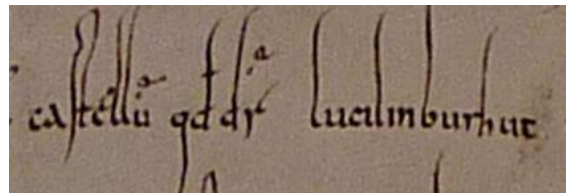 castellū qd dr̄ lucilinburhuc